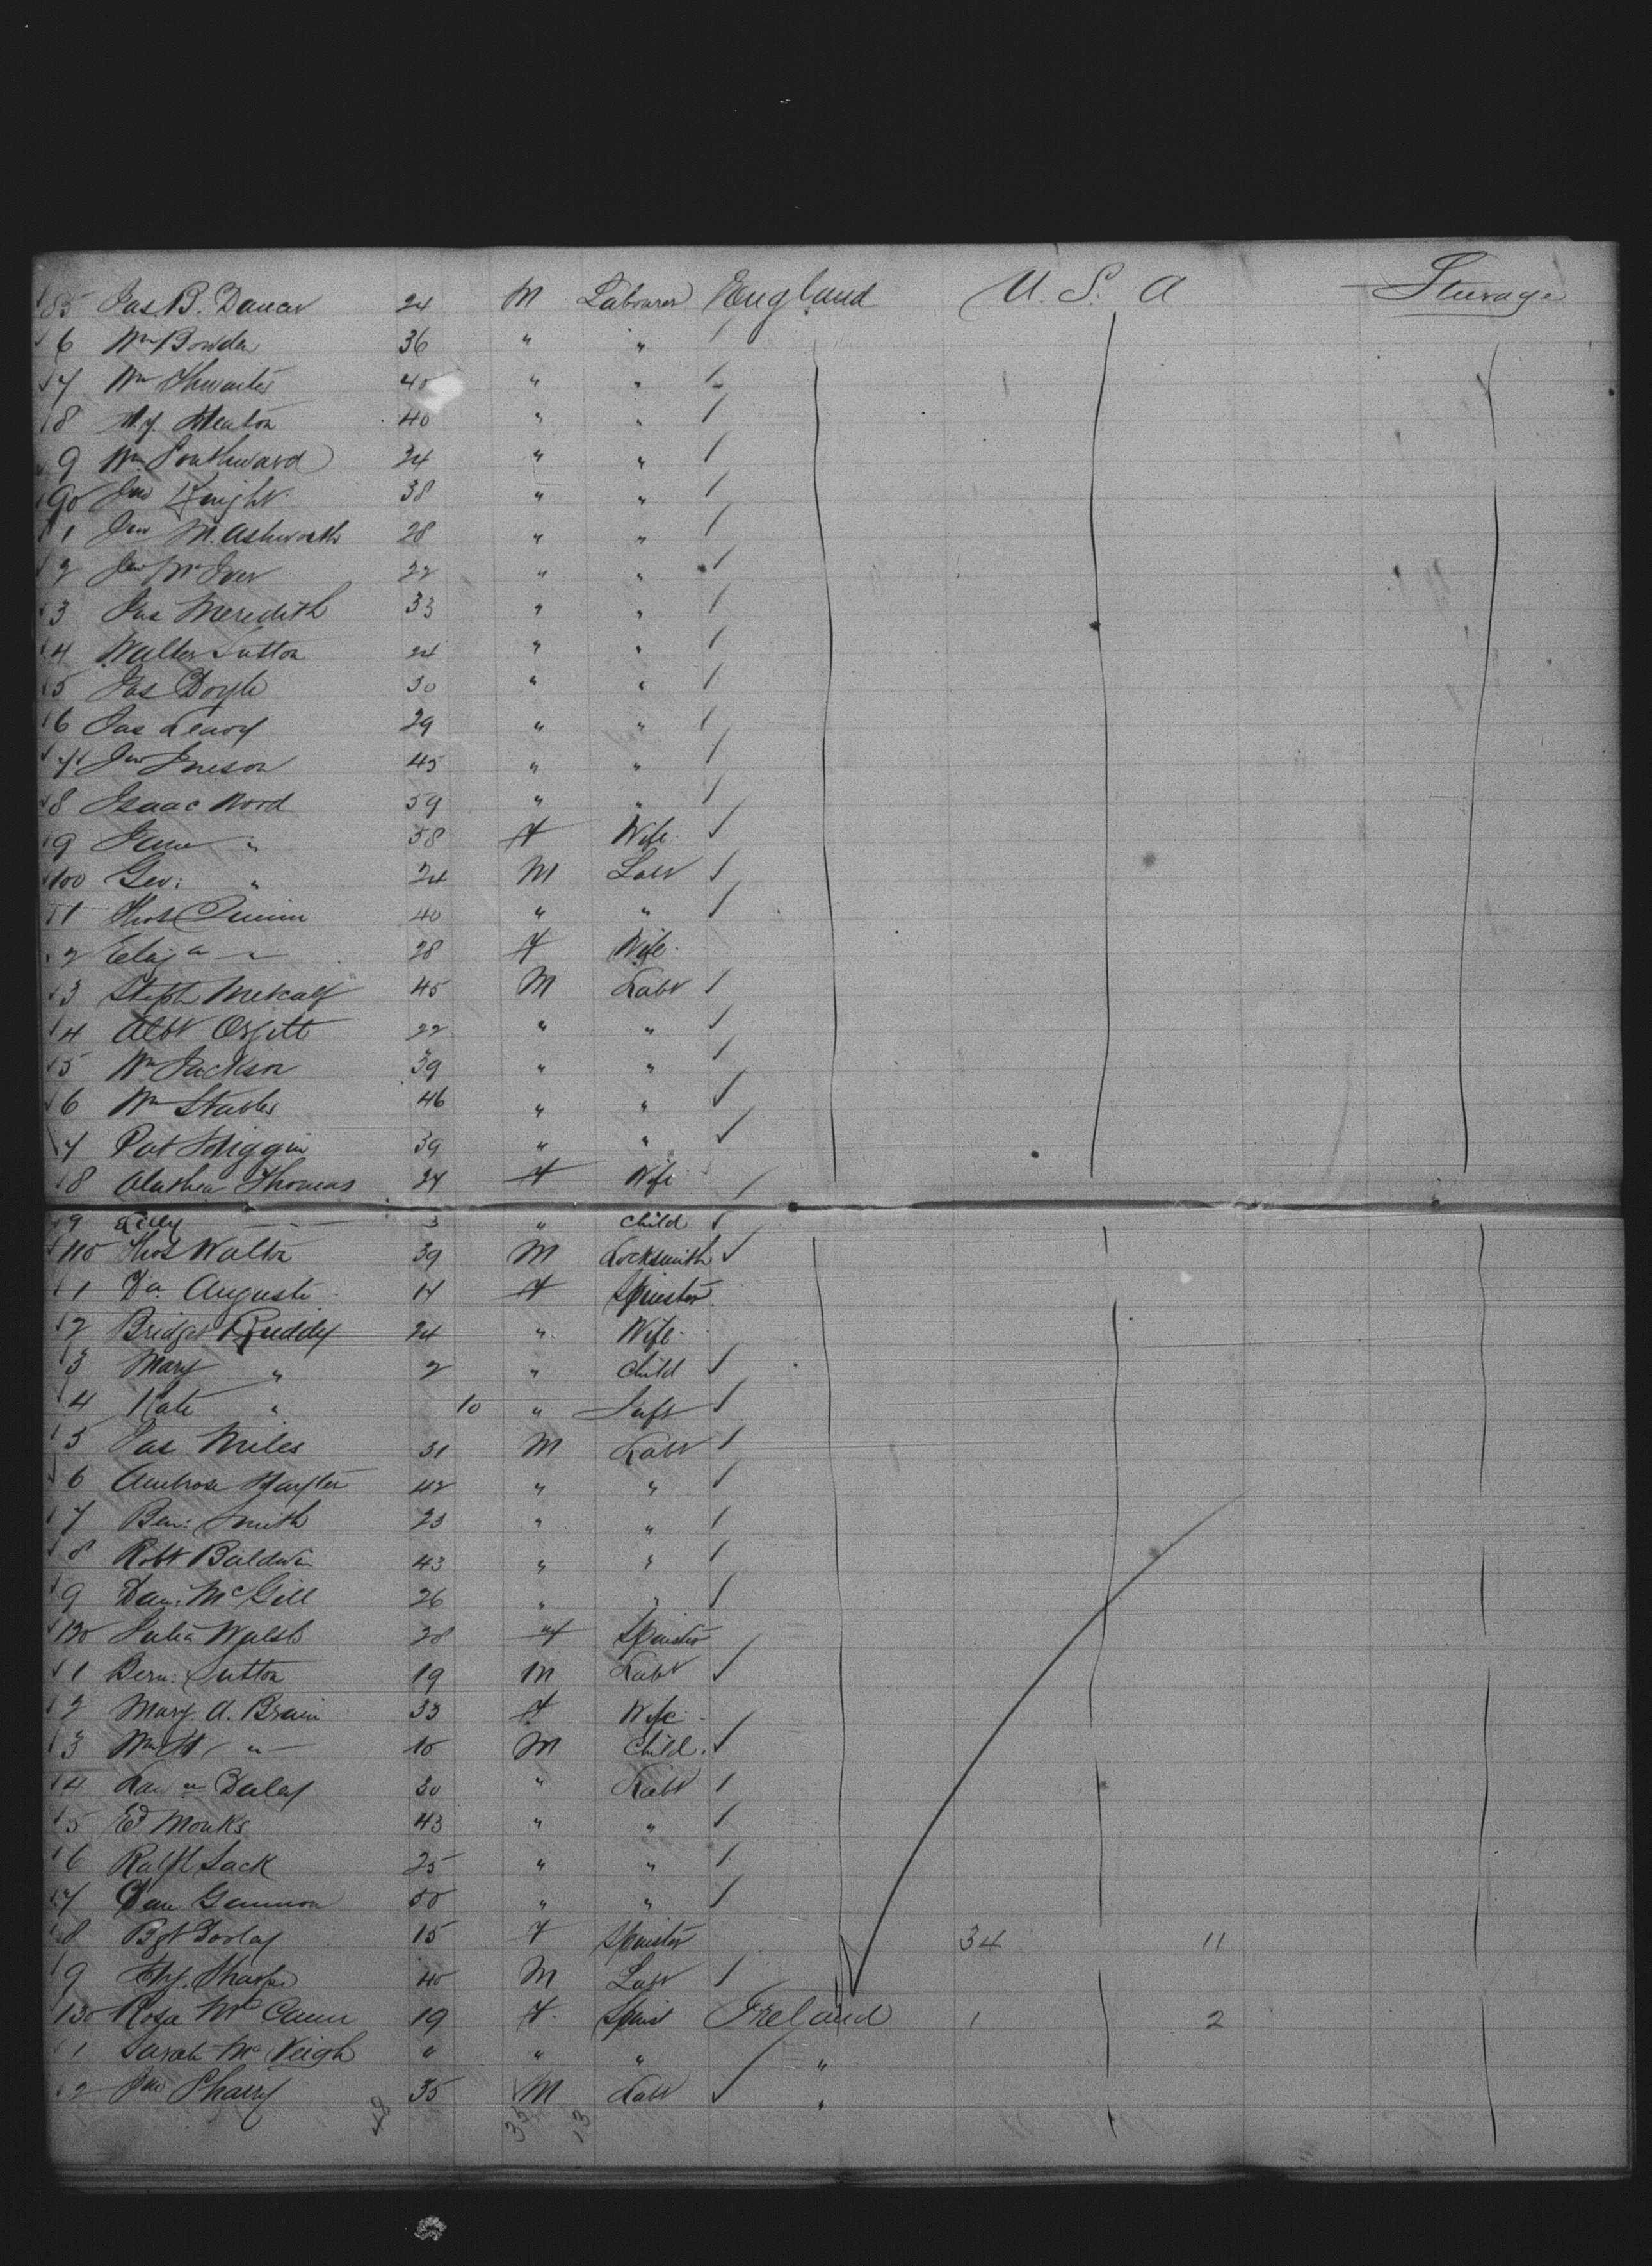 85 Jas. B. Dancer 24 M Labourer England U. S. A Steerage
6 Wm Bowden 36 " "
7 Wm Thwaites 40 " "
8 Hy. Heaton 40 " "
9 Wm Southward 24 " "
90 Jno Knight 38 " "
1 Jno M. Ashworth 28 " "
2 Jno McIver 22 " "
3 Jas Meredith 33 " "
4 Walter Sutton 24 " "
5 Jas Doyle 30 " "
6 Jas Leary 29 " "
7 Jno 45 " "
8 Isaac Wood 59 " "
9 Jane " 58 F Wife
100 Geo: " 24 M Labr
1 Thos Quinn 40 " "
2 Eliza " 28 F Wife
3 Steph Metcalf 45 M Labr
4 Albt 22 " "
5 Wm Jackson 39 " "
6 Wm Stables 46 " "
7 Pat Higgin 39 " "
8 Alathea Thomas 27 F Wife
9 Lilly 3 " Child
110 Thos Walton 39 M Locksmith
1 Do. Auguste 14 F Spinster
2 Bridget Ruddy 24 " Wife
3 Mary " 2 " Child
4 Kate " 10 " Inft
5 Jas Miles 31 M Labr
6 Ambrose 42 " "
7 Ben: Smith 23 " "
8 Robt Baldwin 43 " "
9 Dan: McGill 26 " "
120 Julia Walsh 28 F Spinster
1 Bern: Sutton 19 M Labr
2 Mary A. Brain 33 F Wife
3 Wm H " 10 M Child
4 Daley 30 " Labr
5 Ed Monks 43 " "
6 Ralph Sack 25 " "
7 Dan Gannon 50 " "
8 Bgt 15 F Spinster 34 11
9 Hy. Sharpe 40 M Labr
130 Rosa McCann 19 F Spinst Ireland 1 2
1 Sarah McVeigh " " " "
2 Jno Sharry 35 M Labr "
48 35 13